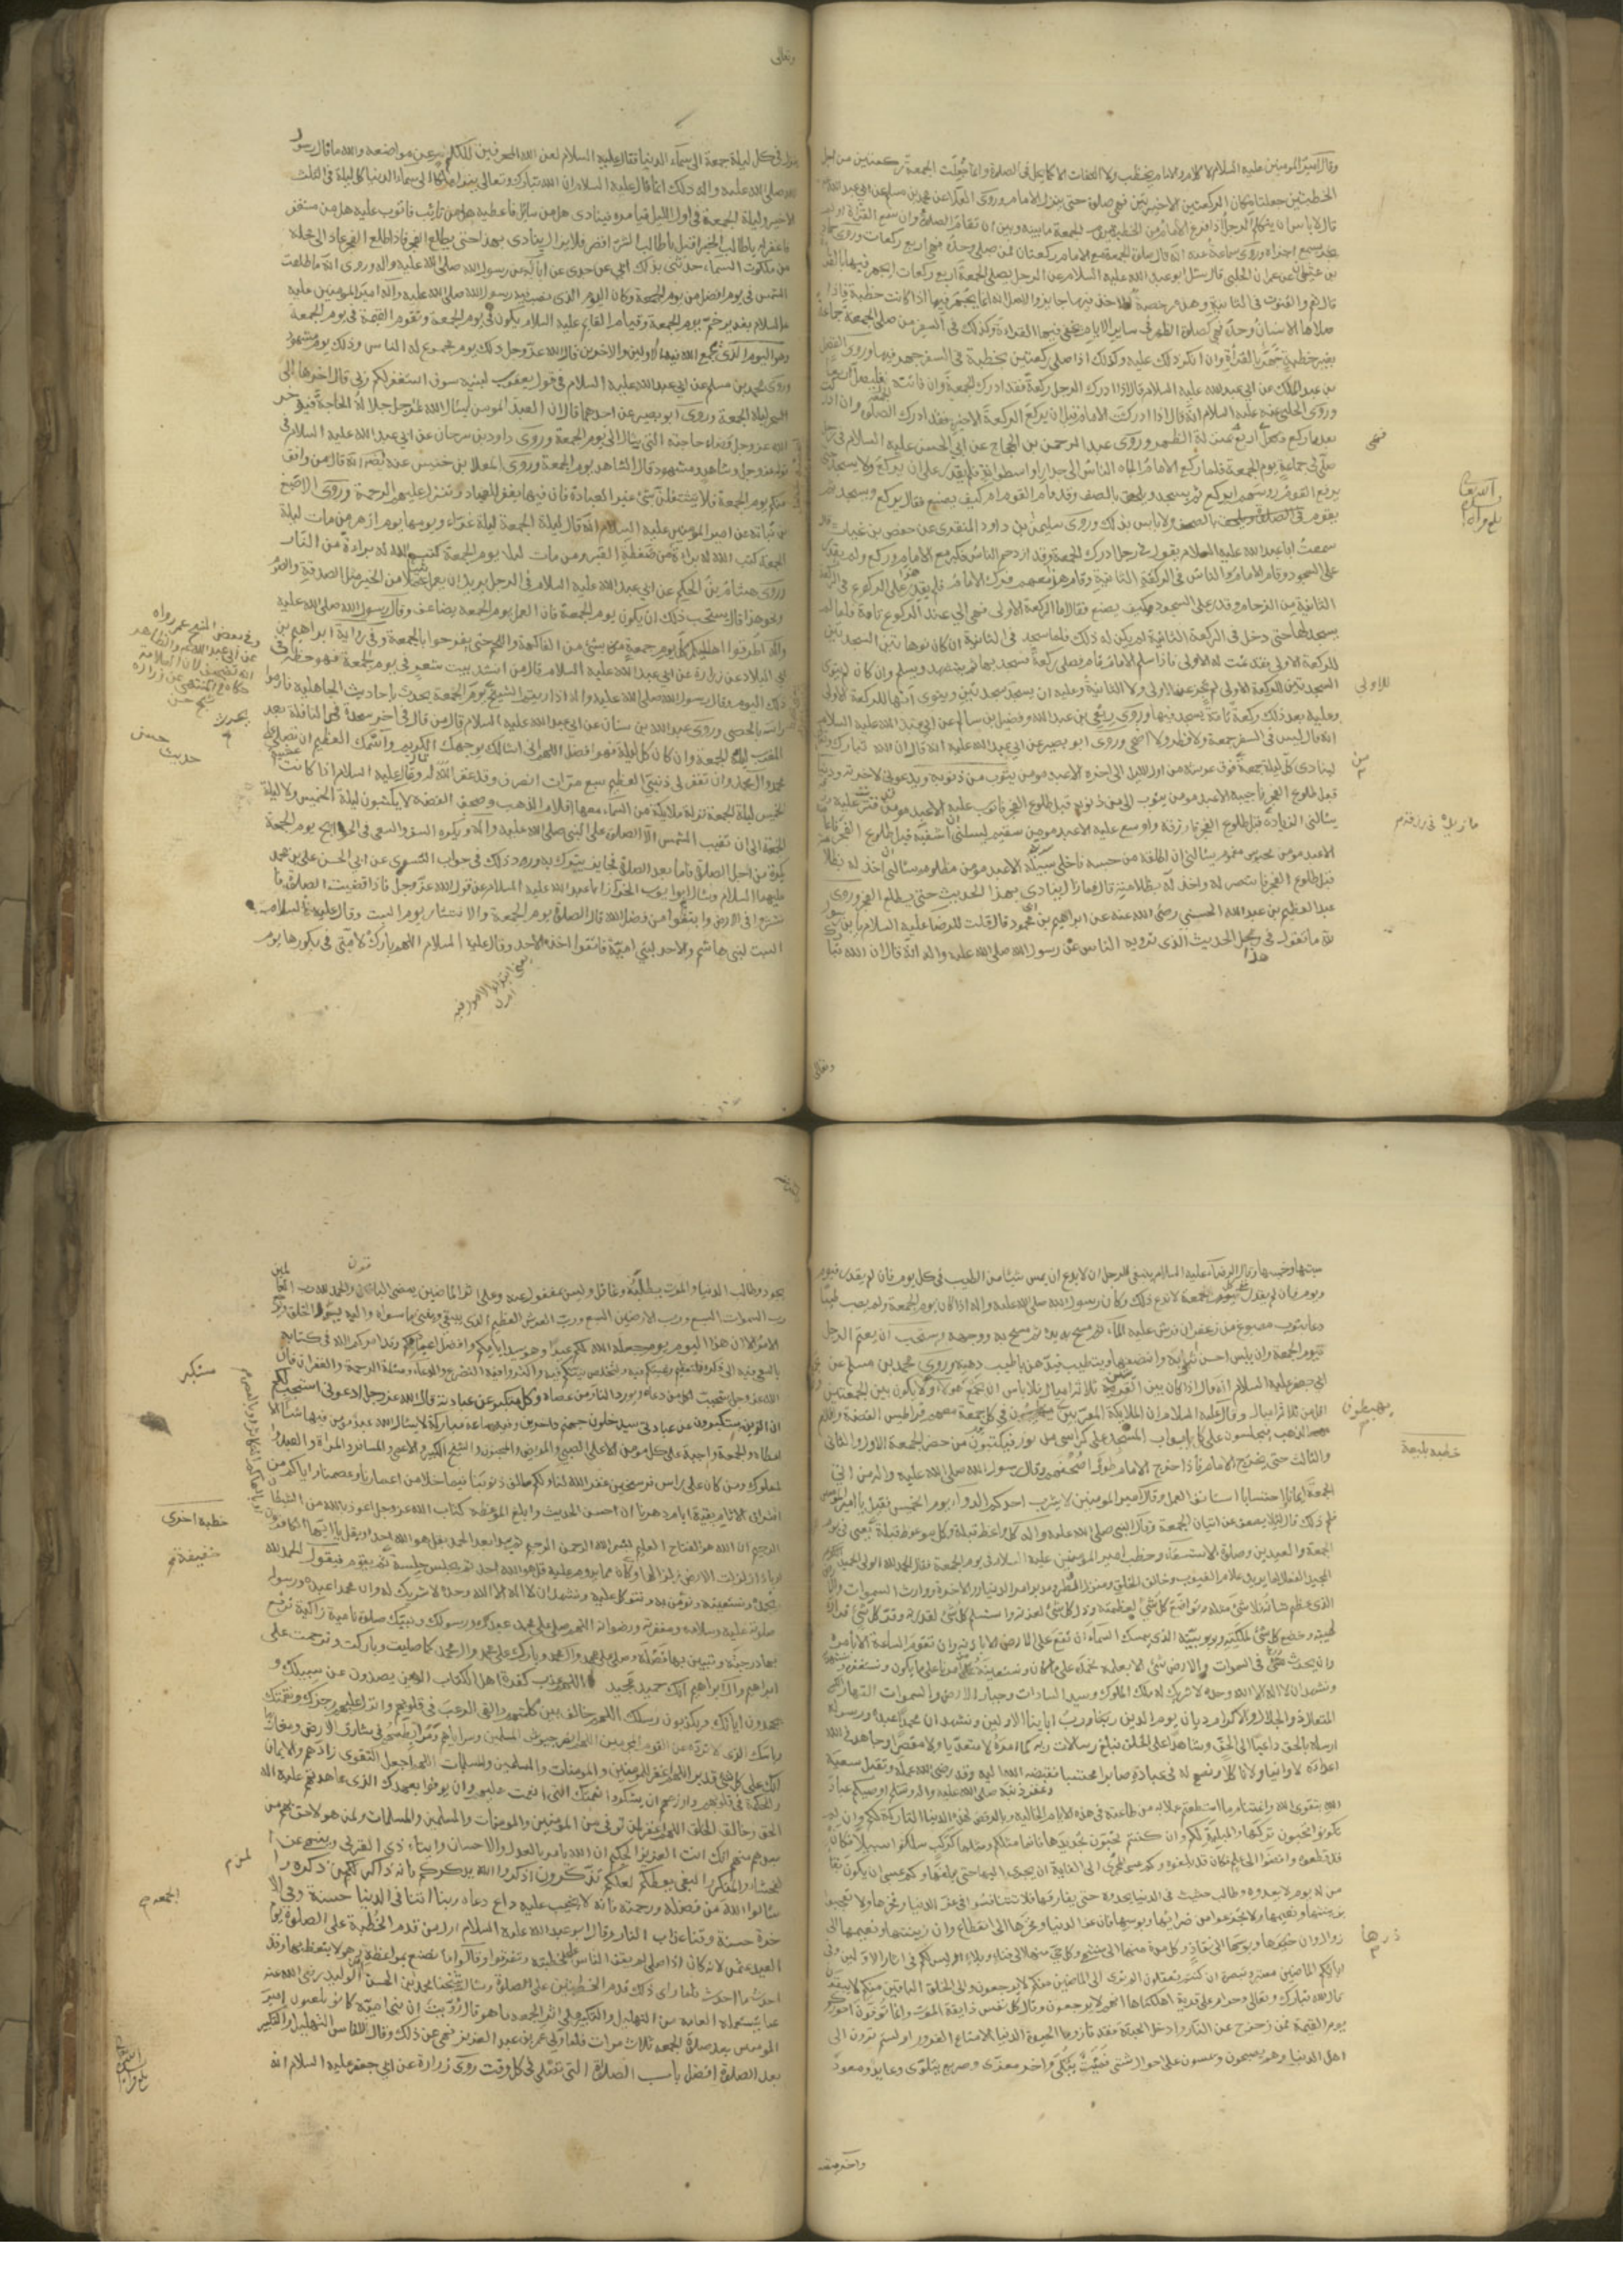 وقال امير المؤمنين عليه السلام لا كلام والامام يخطب ولا التفات الا كما يحل في الصلوة وانما جعلت الجمعة ركعتين من اجل
الخطبتين جعلتا مكان الركعتين الاخيرتين فهي صلوة حتى ينزل الامام وروى العلاء عن محمد بن مسلم عن ابي عبد الله
قال لا باس ان يتكلم الرجل اذا فرغ الامام من الخطبة يوم الجمعة ما بينه وبين ان تقام الصلوة وان سمع القراءة او لم
يسمع اجزاه وروى سماعة عنه انه قال صلوة الجمعة مع الامام ركعتان فمن صلى وحده فهي اربع ركعات وروى حماد
بن عثمان عن عمران الحلبي قال سئل ابو عبد الله عليه السلام عن الرجل يصلي الجمعة اربع ركعات ايجهر فيها بالقراءة
قال نعم والقنوت في الثانية وهذه رخصة الاخذ بها جايز والاصل انه انما يجهر فيها اذا كانت خطبة فاذا
صلاها الانسان وحده فهي كصلوة الظهر في ساير الايام يخفي فيها القراءة وكذلك في السفر من صلى الجمعة جماعة
بغير خطبة جهر بالقراءة وان انكر ذلك عليه وكذلك اذا صلى ركعتين بخطبة في السفر جهر فيها وروى الفضل
بن عبد الملك عن ابي عبد الله عليه السلام قال اذا ادرك الرجل ركعة فقد ادرك الجمعة وان فاتته فليصل اربعا
وروى الحلبي عنه عليه السلام انه قال اذا ادركت الامام قبل ان يركع الركعة الاخيرة فقد ادركت الصلوة وان ادركته
بعد ما ركع فهي اربع بمنزلة الظهر وروى عبد الرحمن بن الحجاج عن ابي الحسن عليه السلام في رجل
صلى في جماعة يوم الجمعة فلما ركع الامام الجاه الناس الى جدار او اسطوانة فلم يقدر على ان يركع ولا يسجد حتى
رفع القوم رؤسهم ايركع ثم يسجد ويلحق بالصف وقد قام القوم ام كيف يصنع فقال يركع ويسجد ثم
يقوم في الصف ولا باس بذلك وروى سليمان بن داود المنقري عن حفص بن غياث قال
سمعت ابا عبد الله عليه السلام يقول في رجل ادرك الجمعة وقد ازدحم الناس فكبر مع الامام وركع ولم يقدر
على السجود وقام الامام والناس في الركعة الثانية وقام هذا معهم فركع الامام فلم يقدر هذا على الركوع في الركعة
الثانية من الزحام وقدر على السجود كيف يصنع فقال اما الركعة الاولى فهي الى عند الركوع تامة فلما لم
يسجد لها حتى دخل في الركعة الثانية لم يكن له ذلك فلما سجد في الثانية ان كان نوى هاتين السجدتين
للركعة الاولى فقد تمت له الاولى فاذا سلم الامام قام فصلى ركعة يسجد بها ثم يتشهد ويسلم وان كان لم ينو
السجدتين للركعة الاولى لم تجز عنه الاولى ولا الثانية وعليه ان يسجد سجدتين وينوي انهما للركعة الاولى
وعليه بعد ذلك ركعة ثانية يسجد فيها وروى ربعي بن عبد الله وفضيل بن يسار عن ابي عبد الله عليه السلام
انه قال ليس في السفر جمعة ولا فطر ولا اضحى وروى ابو بصير عن ابي عبد الله عليه انه قال ان الله تبارك وتعالى
لينادي كل ليلة جمعة من فوق عرشه من اول الليل الى اخره الا عبد مومن يتوب من ذنوبه ويدعوني لاخرته ودنياه
قبل طلوع الفجر فاجيبه الا عبد مومن يتوب الي من ذنوبه قبل طلوع الفجر فاتوب عليه الا عبد مومن قد قترت عليه رزقه
يسالني الزيادة قبل طلوع الفجر فازيده واوسع عليه الا عبد مومن سقيم يسالني ان اشفيه قبل طلوع الفجر فاعافيه
الا عبد مومن محبوس مغموم يسالني ان اطلقه من حبسه فاخلي سبيله الا عبد مومن مظلوم يسالني ان اخذ له بظلامته
قبل طلوع الفجر فانتصر له واخذ له بظلامته قال فما زال ينادي بهذا الحديث حتى يطلع الفجر وروى
عبد العظيم بن عبد الله الحسيني رضي الله عنه عن ابراهيم بن ابي محمود قال قلت للرضا عليه السلام يا بن رسول
الله ما تقول في هذا الحديث الذي يرويه الناس عن رسول الله صلى الله عليه واله انه قال ان الله تبارك
فهي
للاولى
من
وتعالى
وتعالى
ينزل في كل ليلة جمعة الى سماء الدنيا فقال عليه السلام لعن الله المحرفين للكلم عن مواضعه والله ما قال رسول
الله صلى الله عليه واله ذلك انما قال عليه السلام ان الله تبارك وتعالى ينزل ملكا الى سماء الدنيا كل ليلة في الثلث
الاخير وليلة الجمعة في اول الليل فيامره فينادي هل من سائل فاعطيه هل من تائب فاتوب عليه هل من مستغفر
فاغفر له يا طالب الخير اقبل يا طالب الشر اقصر فلا يزال ينادي بهذا حتى يطلع الفجر فاذا طلع الفجر عاد الى محله
من ملكوت السماء حدثني بذلك ابي عن جدي عن ابائه عن رسول الله صلى الله عليه واله وروى انه ما طلعت
الشمس في يوم افضل من يوم الجمعة وكان اليوم الذي نصب فيه رسول الله صلى الله عليه واله امير المؤمنين عليه
السلام بغدير خم يوم الجمعة وقيام القايم عليه السلام يكون في يوم الجمعة وتقوم القيمة في يوم الجمعة
وهو اليوم الذي يجمع الله فيه الاولين والاخرين قال الله عز وجل ذلك يوم مجموع له الناس وذلك يوم مشهود
وروى محمد بن مسلم عن ابي عبد الله عليه السلام في قول يعقوب لبنيه سوف استغفر لكم ربي قال اخرها الى
السحر ليلة الجمعة وروى ابو بصير عن احدهما قال ان العبد المومن ليسال الله عز وجل جلاله الحاجة فيؤخر
الله عز وجل قضاء حاجته التي سال الى يوم الجمعة وروى داود بن سرحان عن ابي عبد الله عليه السلام في
قول الله عز وجل وشاهد ومشهود قال الشاهد يوم الجمعة وروى المعلى بن خنيس عنه ايضا انه قال من وافق
منكم يوم الجمعة فلا يشتغلن بشئ غير العبادة فان فيها يغفر للعباد وتنزل عليهم الرحمة وروى الاصبغ
بن نباته عن امير المؤمنين عليه السلام انه قال ليلة الجمعة ليلة غراء ويومها يوم ازهر من مات ليلة
الجمعة كتب الله له براءة من ضغطة القبر ومن مات يوم الجمعة كتب الله له براءة من النار
وروى هشام بن الحكم عن ابي عبد الله عليه السلام في الرجل يريد ان يعمل شيئا من الخير مثل الصدقة والصوم
ونحو هذا قال يستحب ذلك ان يكون يوم الجمعة فان العمل يوم الجمعة يضاعف وقال رسول الله صلى الله عليه
واله اطرفوا اهاليكم كل يوم جمعة بشئ من الفاكهة واللحم حتى يفرحوا بالجمعة وفي رواية ابراهيم بن
ابي البلاد عن زرارة عن ابي عبد الله عليه السلام قال من انشد بيت شعر في يوم الجمعة فهو حظه في
ذلك اليوم وقال رسول الله صلى الله عليه واله اذا رايتم الشيخ يوم الجمعة يحدث باحاديث الجاهلية فارموا
راسه بالحصى وروى عبد الله بن سنان عن ابي عبد الله عليه السلام قال من قال في اخر سجدة في النافلة بعد
المغرب ليلة الجمعة وان كان كل ليلة فهو افضل اللهم اني اسالك بوجهك الكريم واسمك العظيم ان تصلي على
محمد وال محمد وان تغفر لي ذنبي العظيم سبع مرات انصرف وقد غفر الله له وقال عليه السلام اذا كانت عشية
الخميس ليلة الجمعة نزلت ملائكة من السماء معها اقلام الذهب وصحف الفضة لا يكتبون ليلة الخميس ولا ليلة
الجمعة الى ان تغيب الشمس الا الصلوة على النبي صلى الله عليه واله ويكره السفر والسعي في الحوايج يوم الجمعة
بكرة من اجل الصلوة فاما بعد الصلوة فجايز يتبرك به ورد ذلك في جواب السري عن ابي الحسن علي بن محمد
عليهما السلام وسال ابو ايوب الخزاز ابا عبد الله عليه السلام عن قول الله عز وجل فاذا قضيت الصلوة فا
نتشروا في الارض وابتغوا من فضل الله قال الصلوة يوم الجمعة والانتشار يوم السبت وقال عليه السلام
السبت لبني هاشم والاحد لبني امية فاتقوا اخذ الاحد وقال عليه السلام اللهم بارك لامتي في بكورها يوم
حديث حسن
سبتها وخميسها وقال الرضا عليه السلام ينبغي للرجل ان لا يدع ان يمس شيئا من الطيب في كل يوم فان لم يقدر فيوم
ويوم فان لم يقدر ففي كل جمعة لا يدع ذلك وكان رسول الله صلى الله عليه واله اذا كان يوم الجمعة ولم يصب طيبا
دعا بثوب مصبوغ من زعفران فرش عليه الماء ثم مسح بيده ثم مسح به وجهه ويستحب ان يعتم الرجل
يوم الجمعة وان يلبس احسن ثيابه وانظفها ويتطيب فيدهن باطيب دهنه وروى محمد بن مسلم عن
ابي جعفر عليه السلام انه قال اذا كان بين القريتين ثلاثة اميال فلا باس ان يجمع هؤلاء وهؤلاء ولا يكون بين الجمعتين
اقل من ثلاثة اميال وقال عليه السلام ان الملايكة المقربين يهبطون في كل جمعة معهم قراطيس الفضة واقلام
الذهب يجلسون على كل ابواب المسجد على كراسي من نور فيكتبون من حضر الجمعة الاول والثاني
والثالث حتى يخرج الامام فاذا خرج الامام طووا صحفهم وقال رسول الله صلى الله عليه واله من اتى
الجمعة ايمانا واحتسابا استانف العمل وقال امير المومنين لا يشرب احدكم الدواء يوم الخميس فقيل يا امير المومنين
ولم ذلك قال لئلا يضعف عن اتيان الجمعة وقال النبي صلى الله عليه واله كل واعظ قبلة وكل موعوظ قبلة يعني في
الجمعة والعيدين وصلوة الاستسقاء وخطب امير المؤمنين عليه السلام في يوم الجمعة فقال الحمد لله الولي الحميد
المجيد الفعال لما يريد علام الغيوب وخالق الخلق ومنزل القطر ومدبر امر الدنيا والاخرة ووارث السموات والارض
الذي عظم شانه فلا شئ مثله تواضع كل شئ لعظمته وذل كل شئ لعزته واستسلم كل شئ لقدرته وقر كل شئ قراره
لهيبته وخضع كل شئ لملكته وربوبيته الذي يمسك السماء ان تقع على الارض الا باذنه وان تقوم الساعة الا بامره
وان يحدث في السموات والارض شئ الا بعلمه نحمده على ما كان ونستعينه من امرنا على ما يكون ونستغفره ونستهديه
ونشهد ان لا اله الا الله وحده لا شريك له ملك الملوك وسيد السادات وجبار الارض والسموات القهار الكبير
المتعال ذو الجلال والاكرام ديان يوم الدين ربنا ورب ابائنا الاولين ونشهد ان محمدا عبده ورسوله
ارسله بالحق داعيا الى الحق وشاهدا على الخلق فبلغ رسالات ربه كما امره لا متعديا ولا مقصرا وجاهد في الله
اعداءه لا وانيا ولا ناكلا ونصح له في عباده صابرا محتسبا فقبضه الله اليه وقد رضي عمله وتقبل سعيه
وغفر ذنبه صلى الله عليه واله وسلم اوصيكم عباد
الله بتقوى الله واغتنام ما استطعتم عملا به من طاعته في هذه الايام الخالية وبالرفض لهذه الدنيا التاركة لكم وان لم
تكونوا تحبون تركها والمبلية لكم وان كنتم تحبون تجديدها فانما مثلكم ومثلها كركب سلكوا سبيلا فكان
قد قطعوه وافضوا الى علم فكان قد بلغوه وكم عسى المجرى الى الغاية ان يجري اليها حتى يبلغها وكم عسى ان يكون بقاء
من له يوم لا يعدوه وطالب حثيث في الدنيا يحدوه حتى يفارقها فلا تتنافسوا في عز الدنيا وفخرها ولا تعجبوا
بزينتها ونعيمها ولا تجزعوا من ضرائها وبؤسها فان عز الدنيا وفخرها الى انقطاع وان زينتها ونعيمها الى
زوال وان ضرها وبؤسها الى نفاد وكل مدة منها الى منتهى وكل حي منها الى فناء وبلاء اوليس لكم في اثار الاولين وفي
ابائكم الماضين معتبر وتبصرة ان كنتم تعقلون الم تروا الى الماضين منكم لا يرجعون والى الخلف الباقين منكم لا يبقون
قال الله تبارك وتعالى وحرام على قرية اهلكناها انهم لا يرجعون وقال كل نفس ذايقة الموت وانما توفون اجوركم
يوم القيمة فمن زحزح عن النار وادخل الجنة فقد فاز وما الحيوة الدنيا الا متاع الغرور اولستم ترون الى
اهل الدنيا وهم يصبحون ويمسون على احوال شتى فميت يبكى واخر يعزى وصريع يتلوى وعايد ومعود
يهبطون
خطبة بليغة
يجود وطالب الدنيا والموت يطلبه وغافل وليس بمغفول عنه وعلى اثر الماضين يمضي الباقون والحمد لله رب العالمين
رب السموات السبع ورب الارضين السبع ورب العرش العظيم الذي يبقى ويفنى ما سواه واليه يؤول الخلق ويرجع
الامر الا ان هذا اليوم يوم جعله الله لكم عيدا وهو سيد ايامكم وافضل اعيادكم وقد امركم الله في كتابه
بالسعي فيه الى ذكره فلتعظم رغبتكم فيه ولتخلص نيتكم فيه واكثروا فيه التضرع والدعاء ومسئلة الرحمة والغفران فان
الله عز وجل يستجيب لكل من دعاه ويورد النار من عصاه وكل مستكبر عن عبادته قال الله عز وجل ادعوني استجب لكم
ان الذين يستكبرون عن عبادتي سيدخلون جهنم داخرين وفيه ساعة مباركة لا يسال الله عبد مؤمن فيها شيئا الا
اعطاه والجمعة واجبة على كل مومن الا على الصبي والمريض والمجنون والشيخ الكبير والاعمى والمسافر والمراة والعبد
المملوك ومن كان على راس فرسخين غفر الله لنا ولكم سالف ذنوبنا فيما خلا من اعمارنا وعصمنا واياكم من
اقتراف الاثام بقية ايام دهرنا ان احسن الحديث وابلغ الموعظة كتاب الله عز وجل اعوذ بالله من الشيطان
الرجيم ان الله هو الفتاح العليم بسم الله الرحمن الرحيم ثم يبدا بعد الحمد بقل هو الله احد او بقل يا ايها الكافرون
او باذا زلزلت الارض زلزالها وكان مما يدوم عليه قل هو الله احد ثم يجلس جلسة ثم يقوم فيقول الحمد لله
نحمده ونستعينه ونؤمن به ونتوكل عليه ونشهد ان لا اله الا الله وحده لا شريك له وان محمدا عبده ورسوله
صلوته عليه وسلامه ومغفرته ورضوانه اللهم صل على محمد عبدك ورسولك ونبيك صلوة نامية زاكية ترفع
بها درجته وتبين بها فضله وصل على محمد وال محمد وبارك على محمد وال محمد كما صليت وباركت وترحمت على
ابراهيم وال ابراهيم انك حميد مجيد اللهم عذب كفرة اهل الكتاب الذين يصدون عن سبيلك و
يجحدون اياتك ويكذبون رسلك اللهم خالف بين كلمتهم والق الرعب في قلوبهم وانزل عليهم رجزك ونقمتك
وباسك الذي لا ترده عن القوم المجرمين اللهم انصر جيوش المسلمين وسراياهم ومرابطيهم في مشارق الارض ومغاربها
انك على كل شئ قدير اللهم اغفر للمؤمنين والمومنات والمسلمين والمسلمات اللهم اجعل التقوى زادهم والايمان
والحكمة في قلوبهم واوزعهم ان يشكروا نعمتك التي انعمت عليهم وان يوفوا بعهدك الذي عاهدتهم عليه اله
الحق وخالق الخلق اللهم اغفر لمن توفي من المؤمنين والمومنات والمسلمين والمسلمات ولمن هو لاحق بهم من
بعدهم منهم انك انت العزيز الحكيم ان الله يامر بالعدل والاحسان وايتاء ذي القربى وينهى عن
الفحشاء والمنكر والبغي يعظكم لعلكم تذكرون اذكروا الله يذكركم فانه ذاكر لمن ذكره و
سالوا الله من فضله ورحمته فانه لا يخيب عليه داع دعاه ربنا اتنا في الدنيا حسنة وفي الا
خرة حسنة وقنا عذاب النار وقال ابو عبد الله عليه السلام اول من قدم الخطبة على الصلوة يوم
العيد عثمن لانه كان اذا صلى لم يقف الناس على خطبته وتفرقوا وقالوا ما نصنع بمواعظه وهو لا يتعظ بها وقد
احدث ما احدث فلما راى ذلك قدم الخطبتين على الصلوة وسالت شيخنا محمد بن الحسن بن الوليد رضي الله عنه
عما يستعمله العامة من التهليل والتكبير على اثر الجمعة ما هو فقال رويت ان بني امية كانوا يلعنون امير
المومنين بعد صلوة الجمعة ثلاث مرات فلما ولي عمر بن عبد العزيز نهى عن ذلك وقال للناس التهليل والتكبير
بعد الصلوة افضل باب الصلوة التي تصلى في كل وقت روى زرارة عن ابي جعفر عليه السلام انه
مستكبر
خطبة اخرى
خفيفة